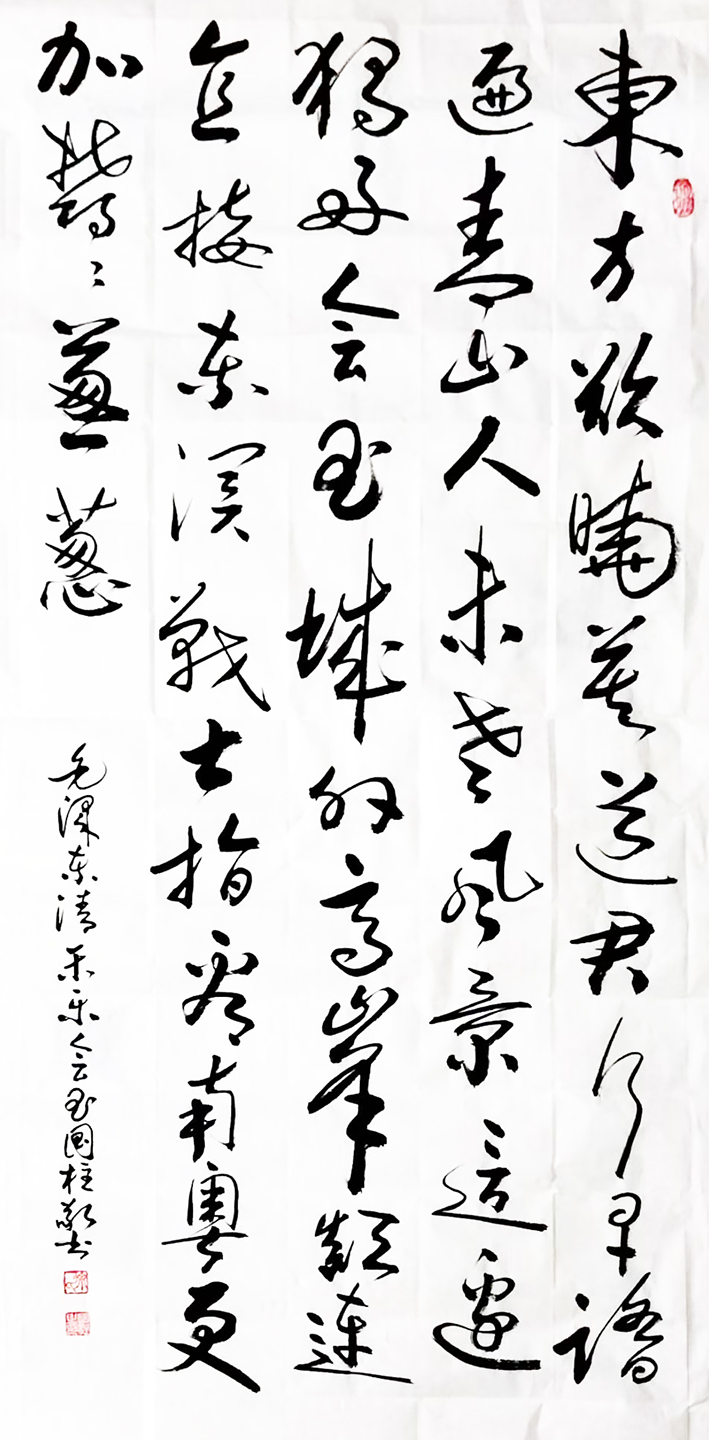 東方欲曉莫道君行早踏
遍青山人未老风景這邊
獨好会昌城外高峯顛連
直接东溟戰士指看南粵更
加鬱々蔥葱
毛泽东清平乐会昌國柱敬书